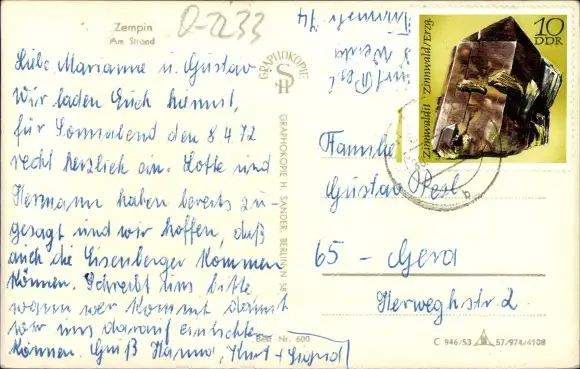 Zempin
Am Strand
O-2233
Liebe Marianne u. Gustav
Wir laden Euch hiermit,
für Sonnabend den 8.4.72
recht herzlich ein. Lotte und
Hermann haben bereits zu-
gesagt und wir hoffen, daß
auch die Eisenberger kommen
können. Schreibt uns bitte
wann wer kommt damit
wir uns darauf einrichten
können. Gruß Hanna, Kurt + Sigrid
Best.-Nr. 600
GRAPHOKOPIE
SH
GRAPHOKOPIE H. SANDER, BERLIN N 58
10
DDR
Zinnwaldit Zinnwald/Erzg.
Familie
Gustav
65 - Gera
Herweghstr. 2
C 946/53 57/974/4108